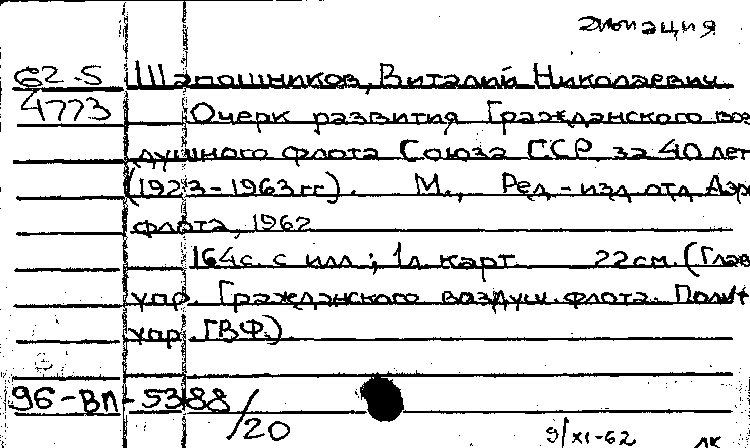 авиация
62.5 Шапошников, Виталий Николаевич
4773 Очерк развития Гражданского воз
душного флота Союза ССР за 40 лет
(1923-1963 гг). М., Ред.-изд отд Аэро
флота, 1962
164с. с илл; 1л. карт. 22см. (Глав
упр. Гражданского воздуш. флота. Полит
упр ГВФ.)
96-ВП-5388/20
9/XI-62 ЛК